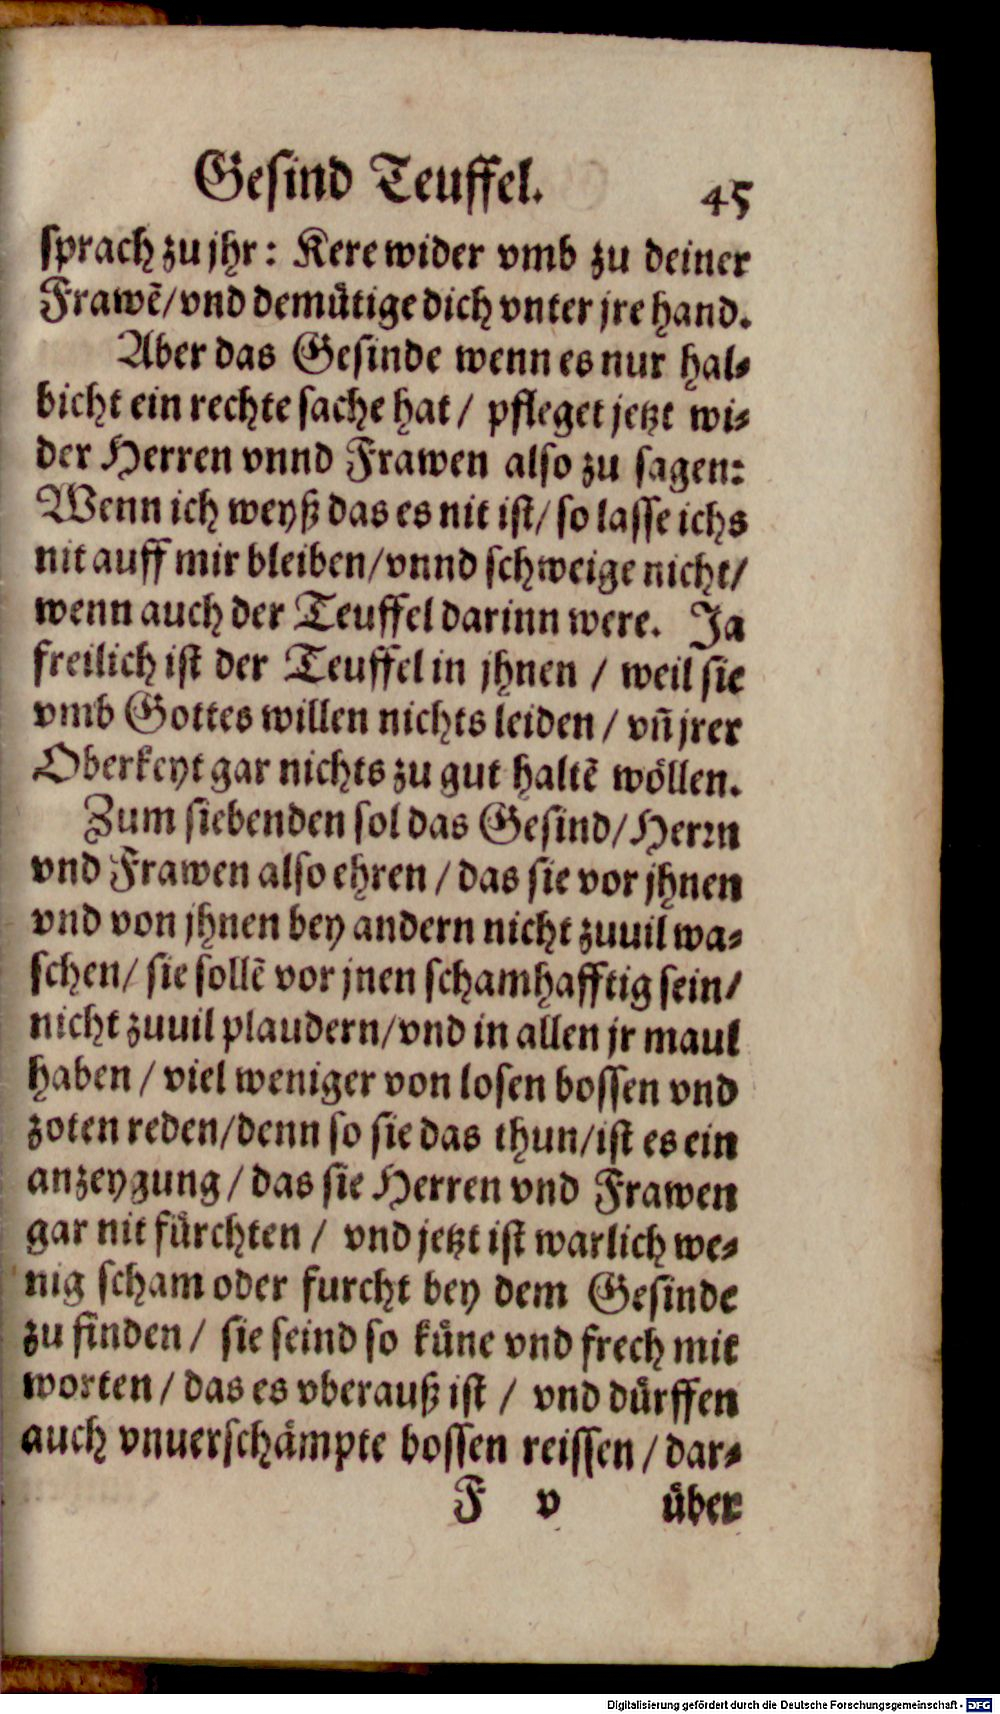 Gesind Teuffel. 45
sprach zu jhr: Kere wider vmb zu deiner
Frawẽ/vnd demuͤtige dich vnter jre hand.
Aber das Gesinde wenn es nur hal⸗
bicht ein rechte sache hat/ pfleget jetzt wi⸗
der Herren vnnd Frawen also zu sagen:
Wenn ich weyß das es nit ist/ so lasse ichs
nit auff mir bleiben/vnnd schweige nicht/
wenn auch der Teuffel darinn were. Ja
freilich ist der Teuffel in jhnen / weil sie
vmb Gottes willen nichts leiden/ vñ jrer
Oberkeyt gar nichts zu gut haltẽ woͤllen.
Zum siebenden sol das Gesind/Herrn
vnd Frawen also ehren/das sie vor jhnen
vnd von jhnen bey andern nicht zuuil wa⸗
schen/ sie sollẽ vor jnen schamhafftig sein/
nicht zuuil plaudern/vnd in allen jr maul
haben/viel weniger von losen bossen vnd
zoten reden/denn so sie das thun/ist es ein
anzeygung/das sie Herren vnd Frawen
gar nit fuͤrchten/ vnd jetzt ist warlich we⸗
nig scham oder furcht bey dem Gesinde
zu finden/ sie seind so kuͤne vnd frech mit
worten/das es vberauß ist/ vnd duͤrffen
auch vnuerschaͤmpte bossen reissen/dar⸗
F v uͤber
Digitalisierung gefördert durch die Deutsche Forschungsgemeinschaft - DFG